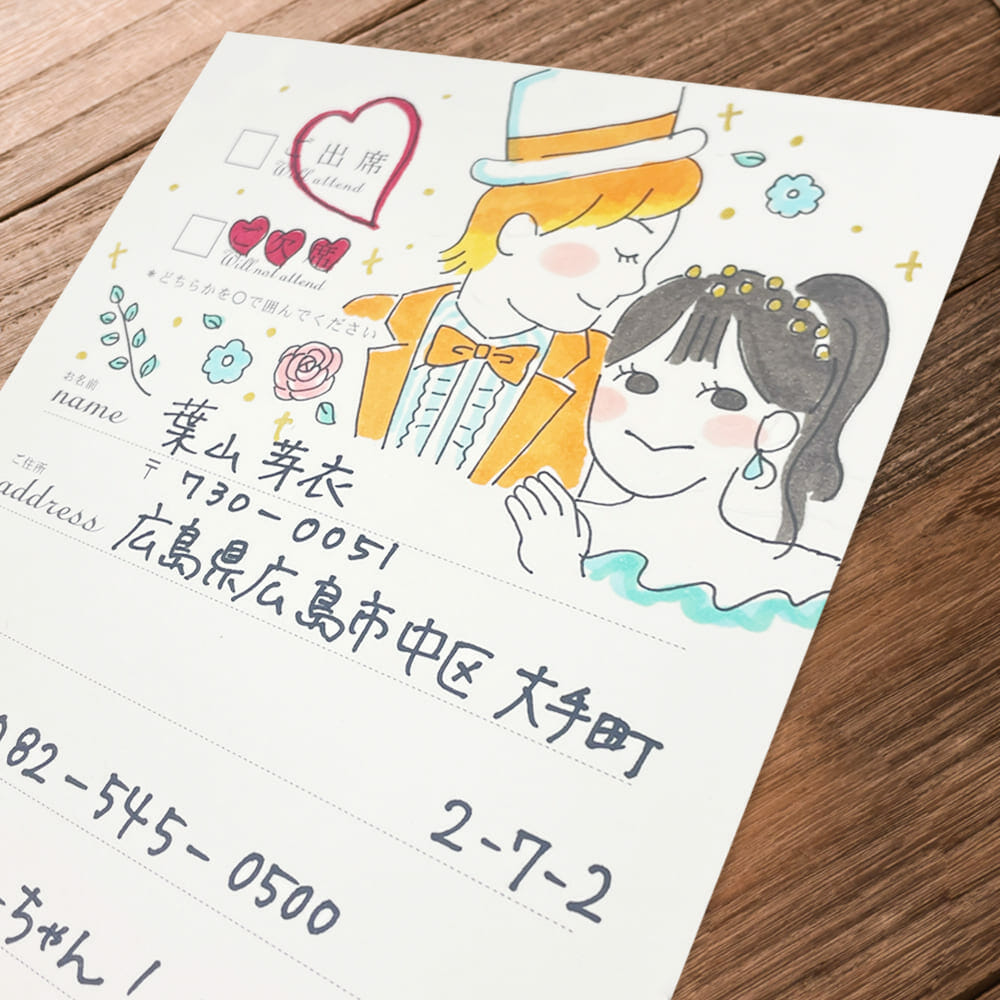 ご出席
Will attend
ご欠席
Will not attend
*どちらかを○で囲んでください
お名前
name
葉山 芽衣
ご住所
address
〒730-0051
広島県広島市中区 大手町
2-7-2
082-545-0500
ちゃん！